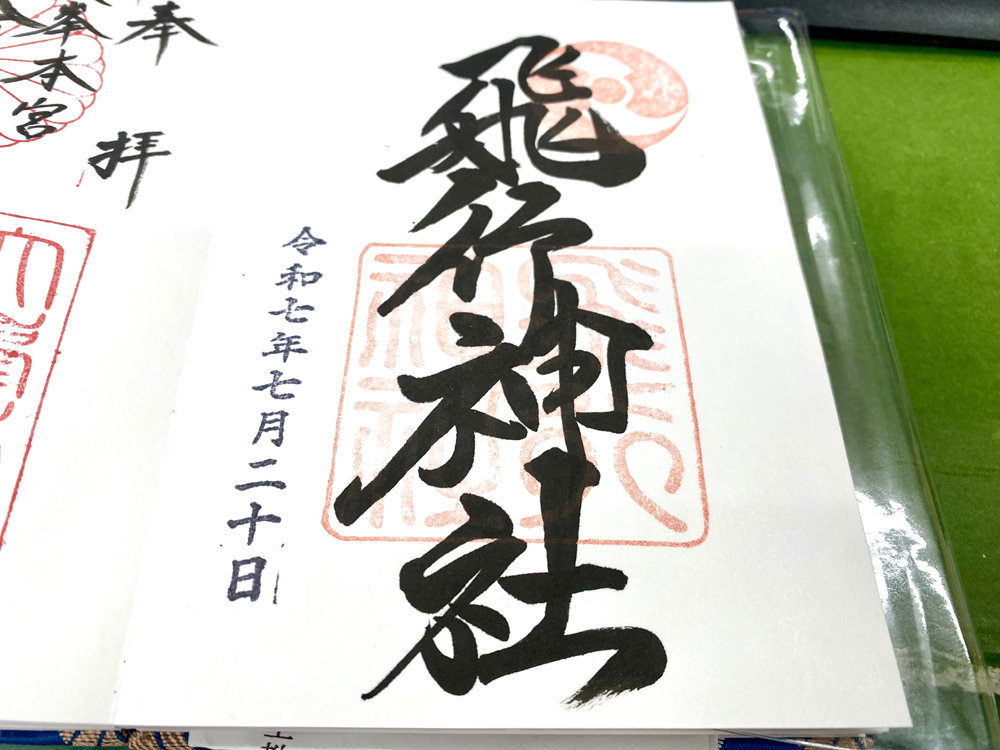 飛行神社
令和七年七月二十日
奉拝
峯本宮